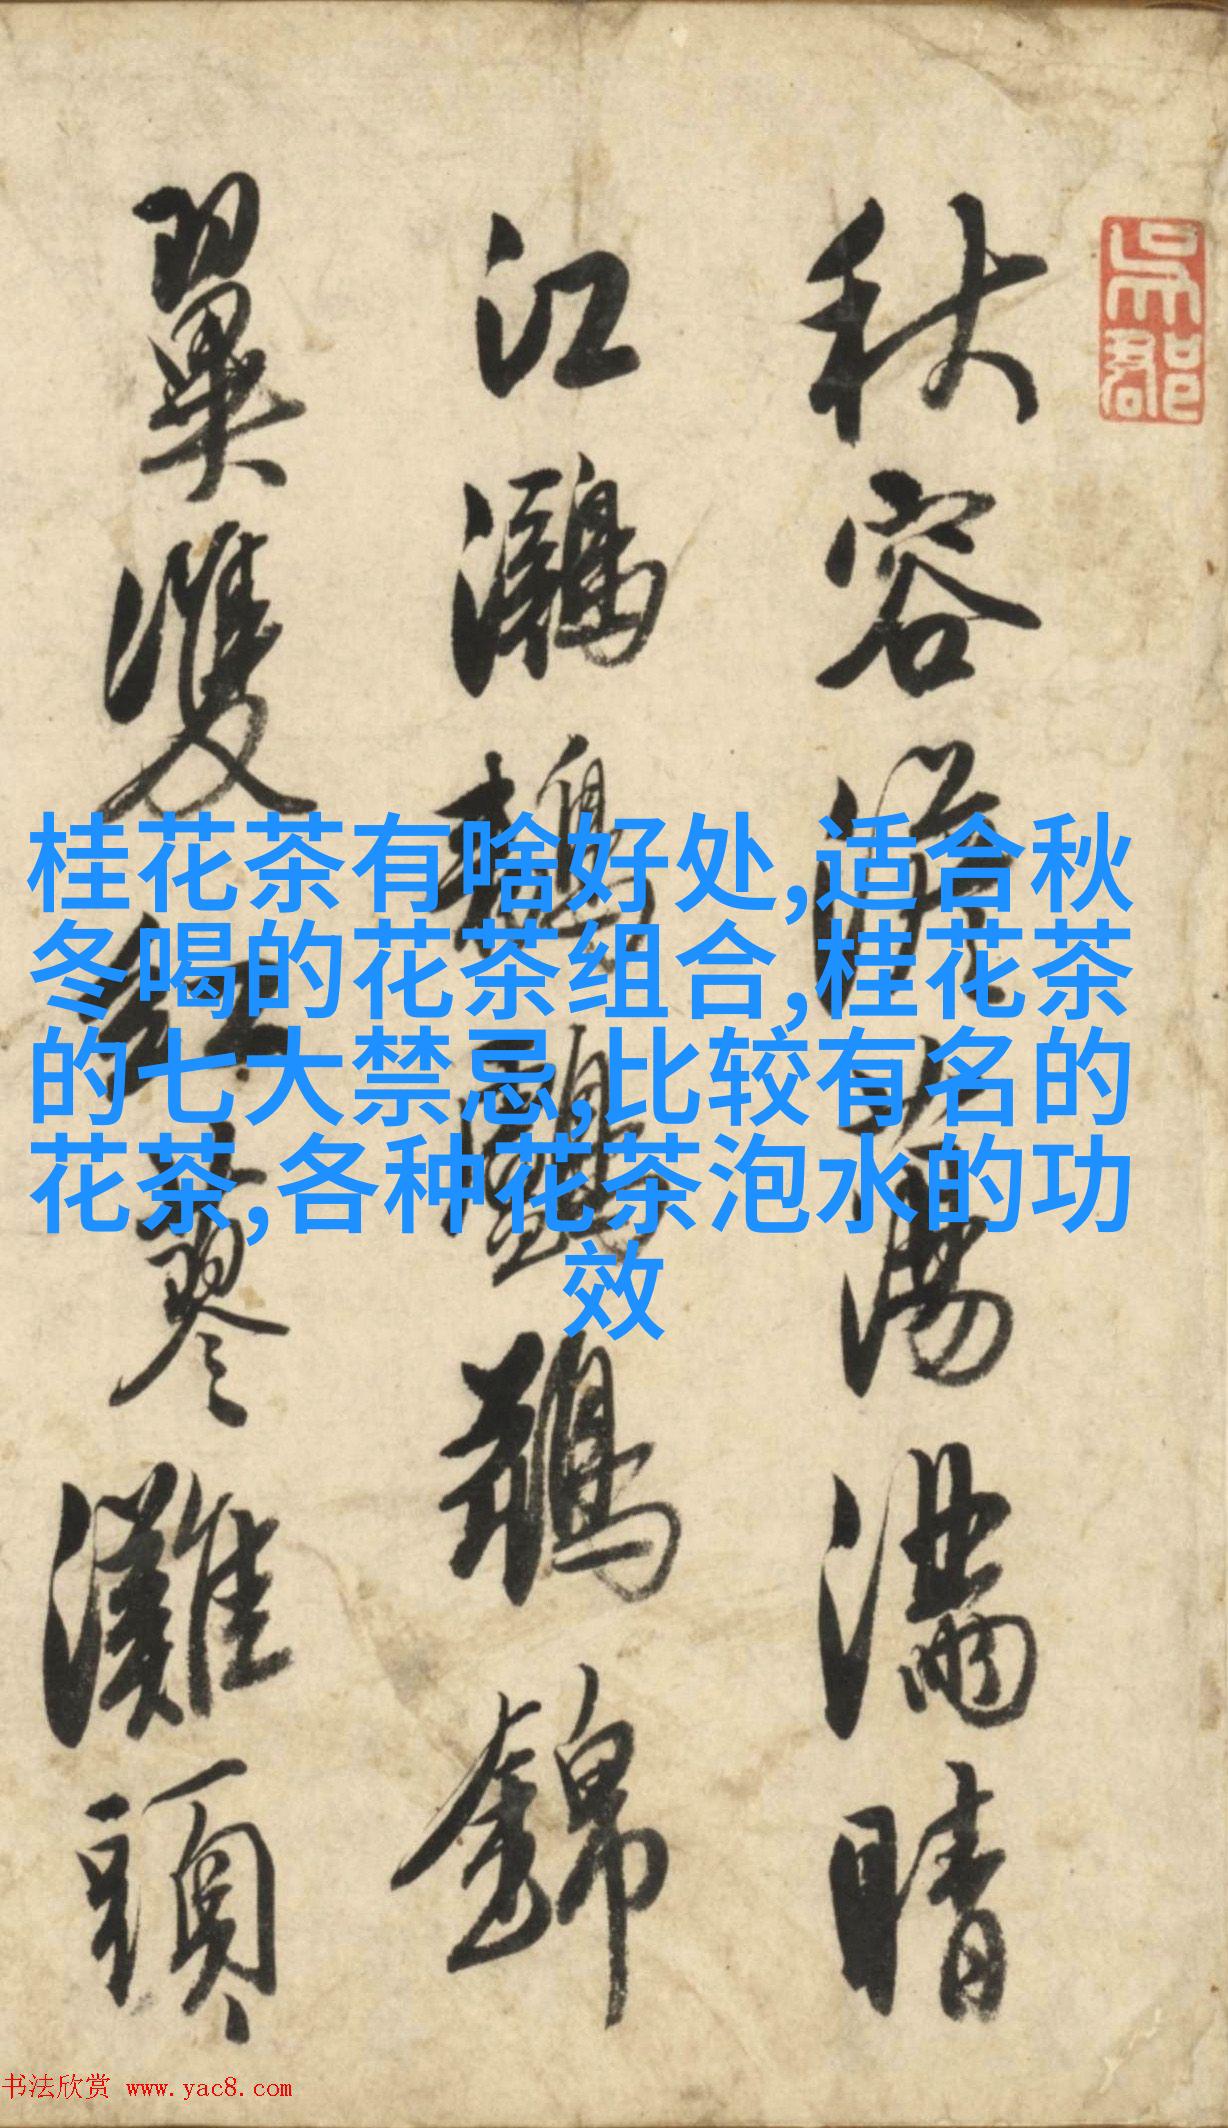 吳郡
秋容漾蕩滿晴
江鸂鶒鸂鶒錦
翼雙紅蓼灘頭
桂花茶有啥好处,适合秋
冬喝的花茶组合,桂花茶
的七大禁忌,比较有名的
花茶,各种花茶泡水的功
效
书法欣赏 www.yac8.com